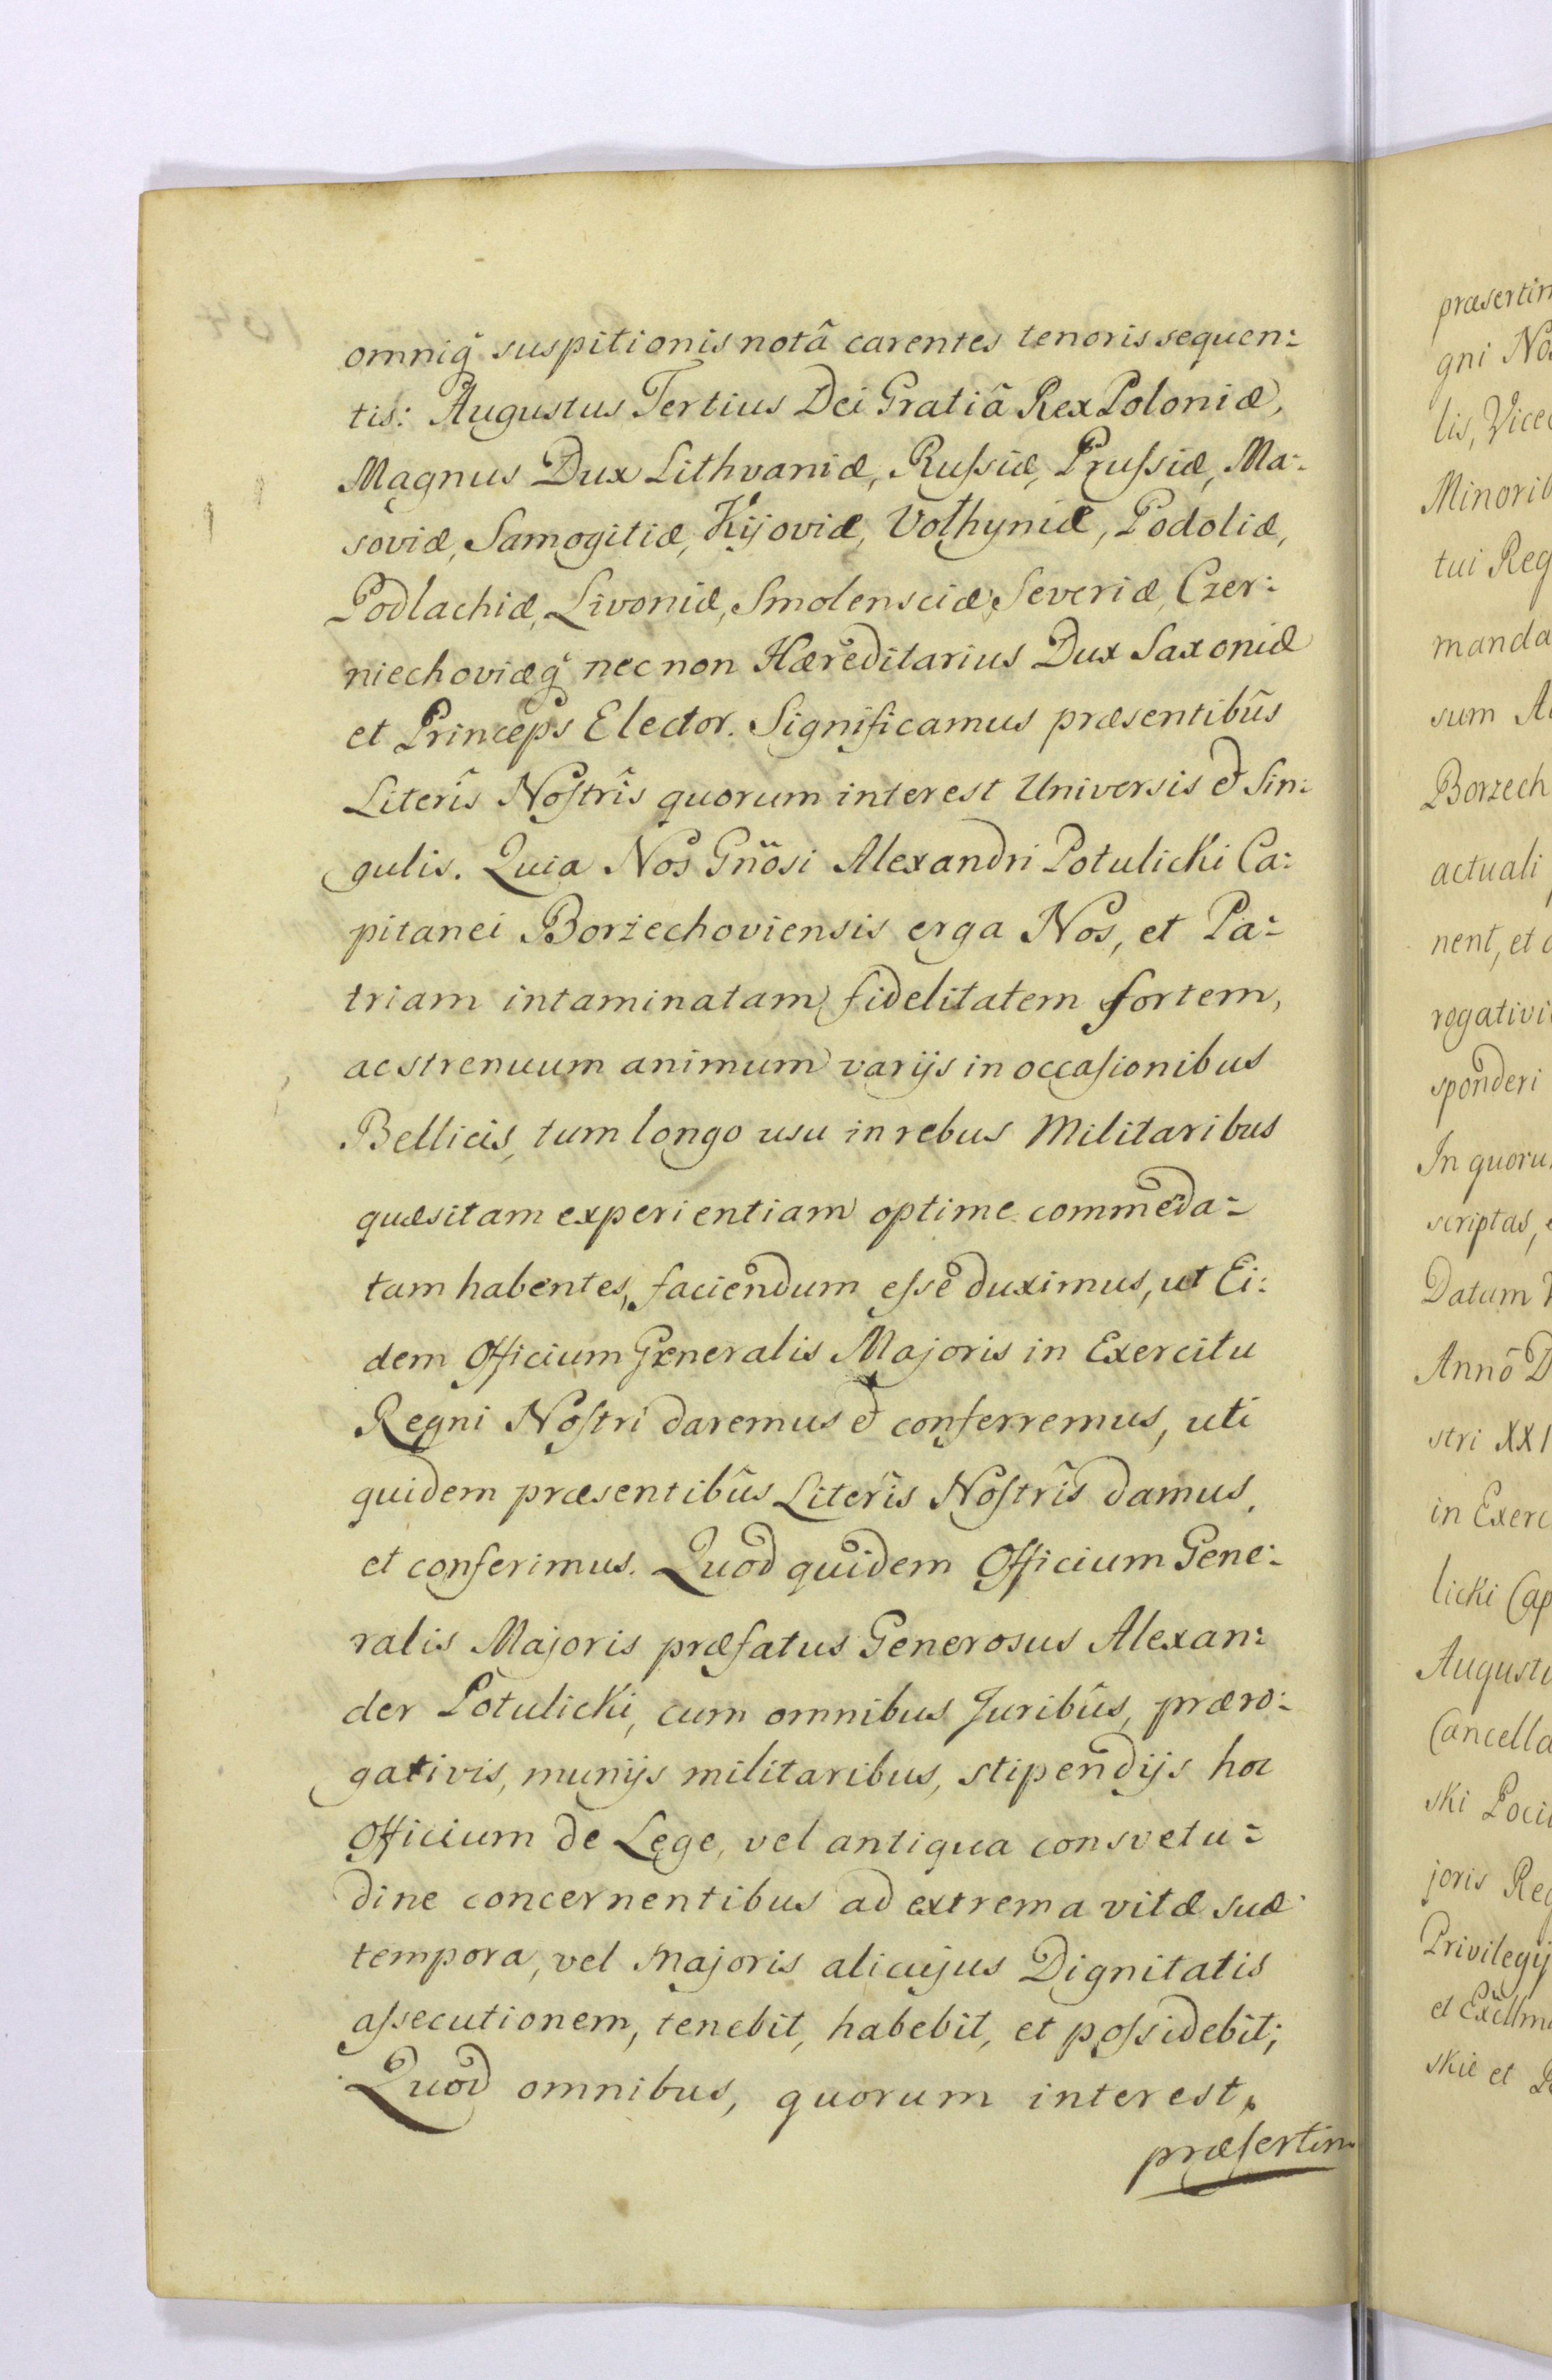 omniq̃ suspitionis notâ carentes tenoris sequen:
tis: Augustus Tertius Dei Gratiâ Rex Poloniæ,
Magnus Dux Lithvaniæ, Ruſsiæ, Pruſsiæ, Ma:
soviæ, Samogitiæ, Kijoviæ, Volhyniæ, Podoliæ,
Podlachiæ, Livoniæ, Smolensciæ, Severiæ, Czer:
niechoviæq̃ nec non Hæreditarius Dux Saxoniæ
et Princeps Elector. Significamus præsentibûs
Literîs Noſtrîs quorum interest Universis et Sin:
gulis. Quia Nos Gnösi Alexandri Potulicki Ca:
pitanei Borżechoviensis erga Nos, et Pa:
triam intaminatam fidelitatem fortem,
ac strenuum animum varijs in occaſionibus
Bellicis, tum longo usu in rebus Militaribus
quæsitam experientiam optime commēda:
tam habentes, faciendum eſse duximus, ut Ei:
dem Officium Generalis Majoris in Exercitu
Regni Noſtri daremus et conferremus, uti
quidem præsentibûs Literîs Noſtrîs damus,
et conferimus. Quod quidem Officium Gene:
ralis Majoris præfatus Generosus Alexan:
der Potulicki, cum omnibus Juribûs, præro:
gativis, munijs militaribus, stipendijs hoc
Officium de Lege, vel antiqua consvetu:
dine concernentibus ad extrema vitæ suæ
tempora, vel Majoris alicujus Dignitatis
aſsecutionem, tenebit, habebit, et poſsidebit;
Quod omnibus, quorum interest,
præſertim
præsertim
gni No
lis, Vice
Minorib
tui Reg
manda
sum A
Borzech
actuali
nent, et
rogativi
sponderi
In quoru
scriptas,
Datum
Annô D
stri XXI
in Exerc
licki Cap
Augusti
Cancella
ski Poci
joris Reg
Privilegij
et Excllm
skie et